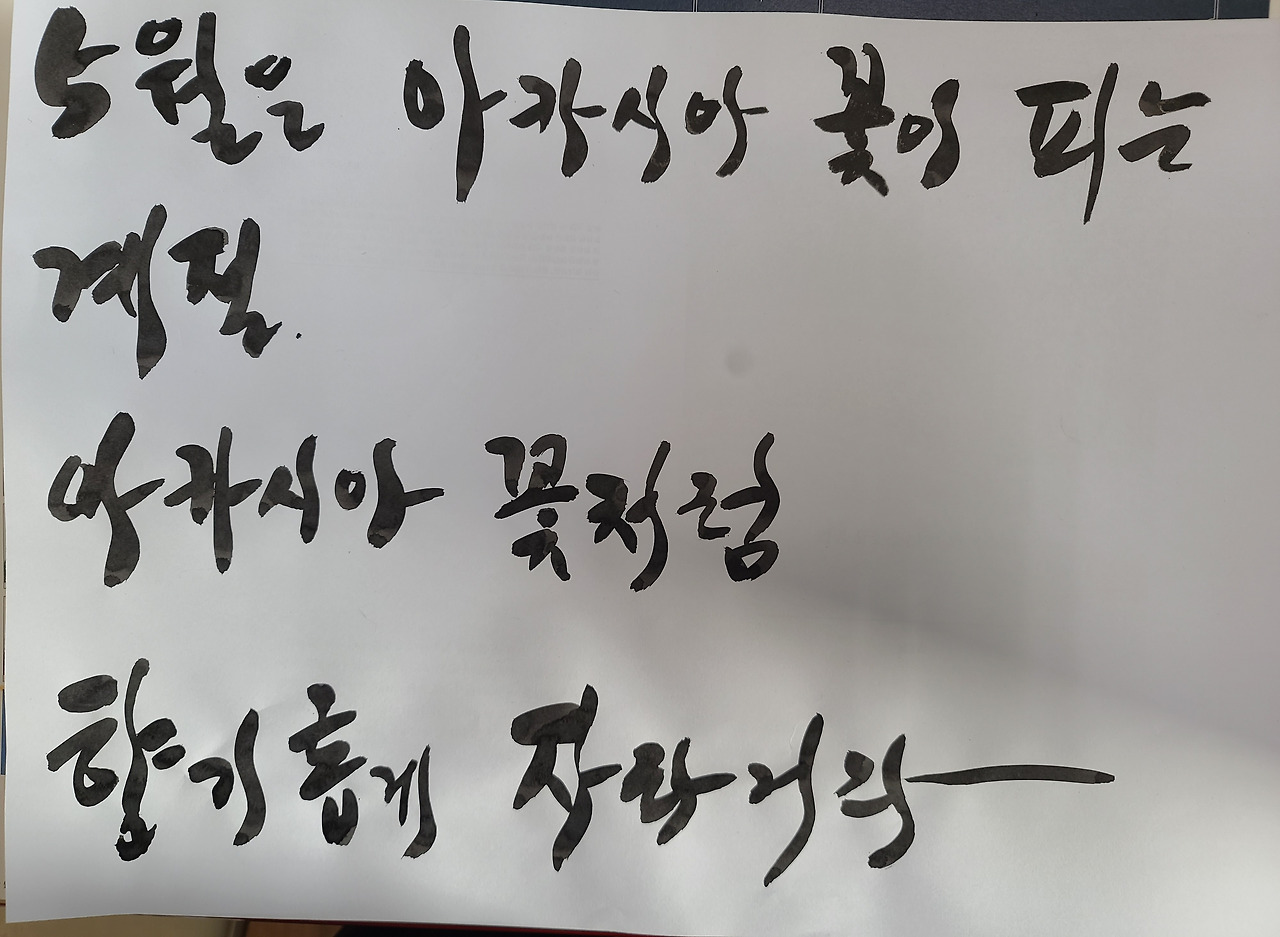 5월은 아카시아 꽃이 피는
계절.
아카시아 꽃처럼
향기롭게 자라거라